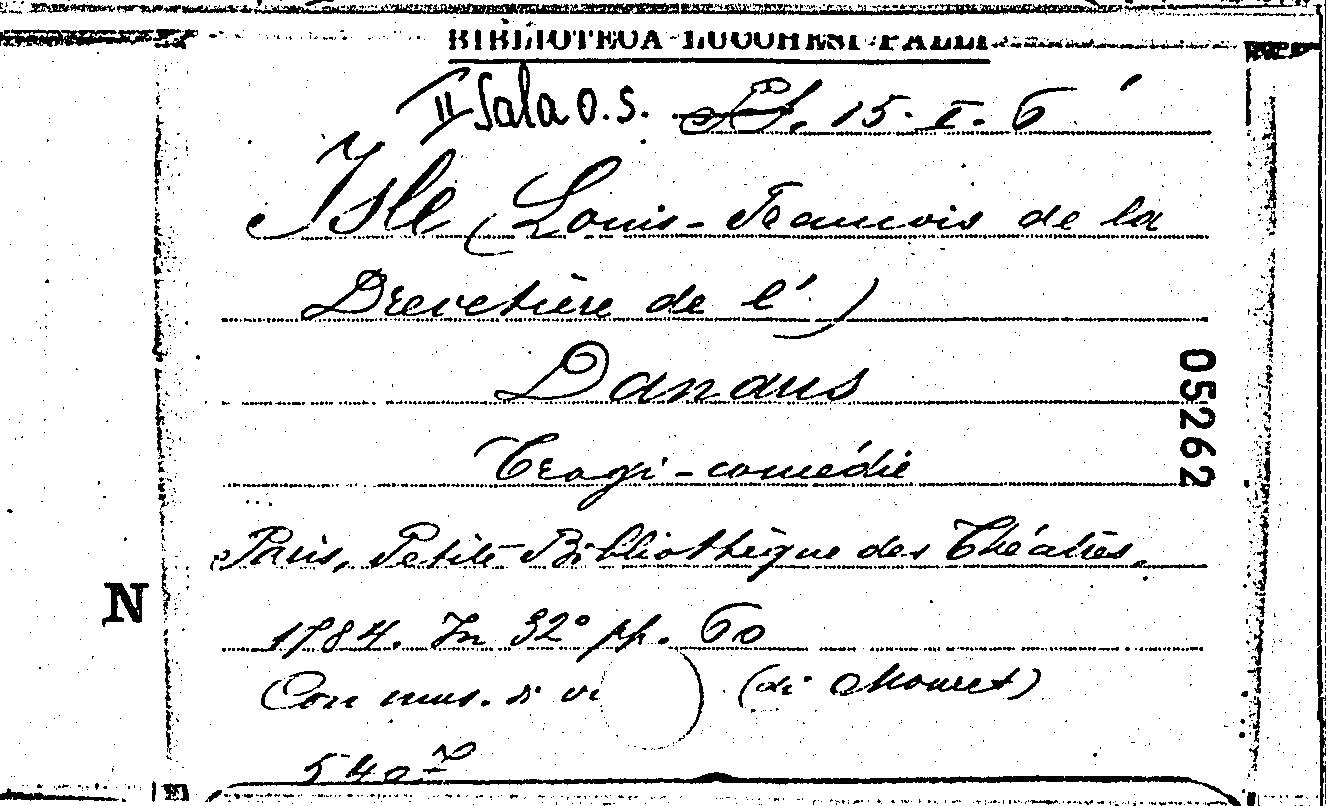 BIBLIOTECA LUCCHESI-PALLI
II Sala O.S. St. 15. I. 6
Isle (Louis-François de la
Drevetière de l')
Danaus
Tragi-comédie
Paris, Petite Bibliothèque des Théatres,
1784. In 32° pp. 60
Con mus. di (di Mouret)
540
05262
N